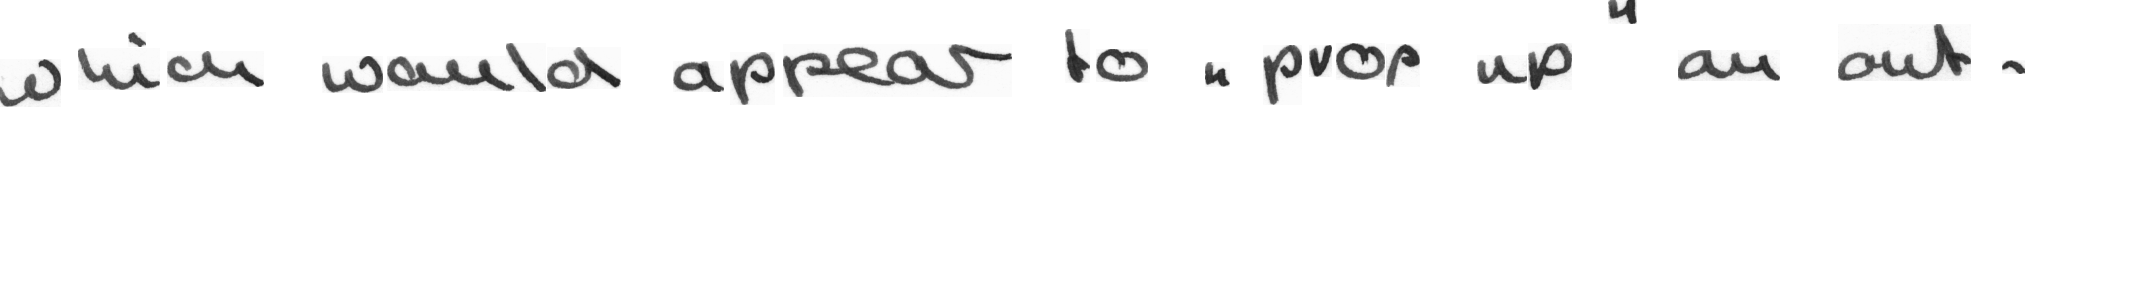 which would appear to "prop up" an out-